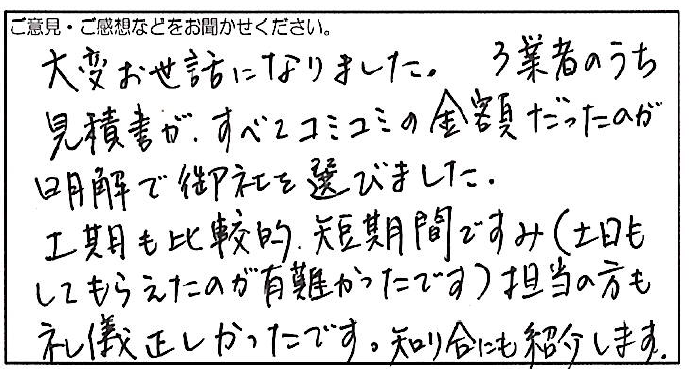 ご意見・ご感想などをお聞かせください。
大変お世話になりました。 3業者のうち
見積書が、すべてコミコミの金額だったのが
明解で御社を選びました。
工期も比較的、短期間ですみ(土日も
してもらえたのが有難かったです)担当の方も
礼儀正しかったです。知り合にも紹介します。